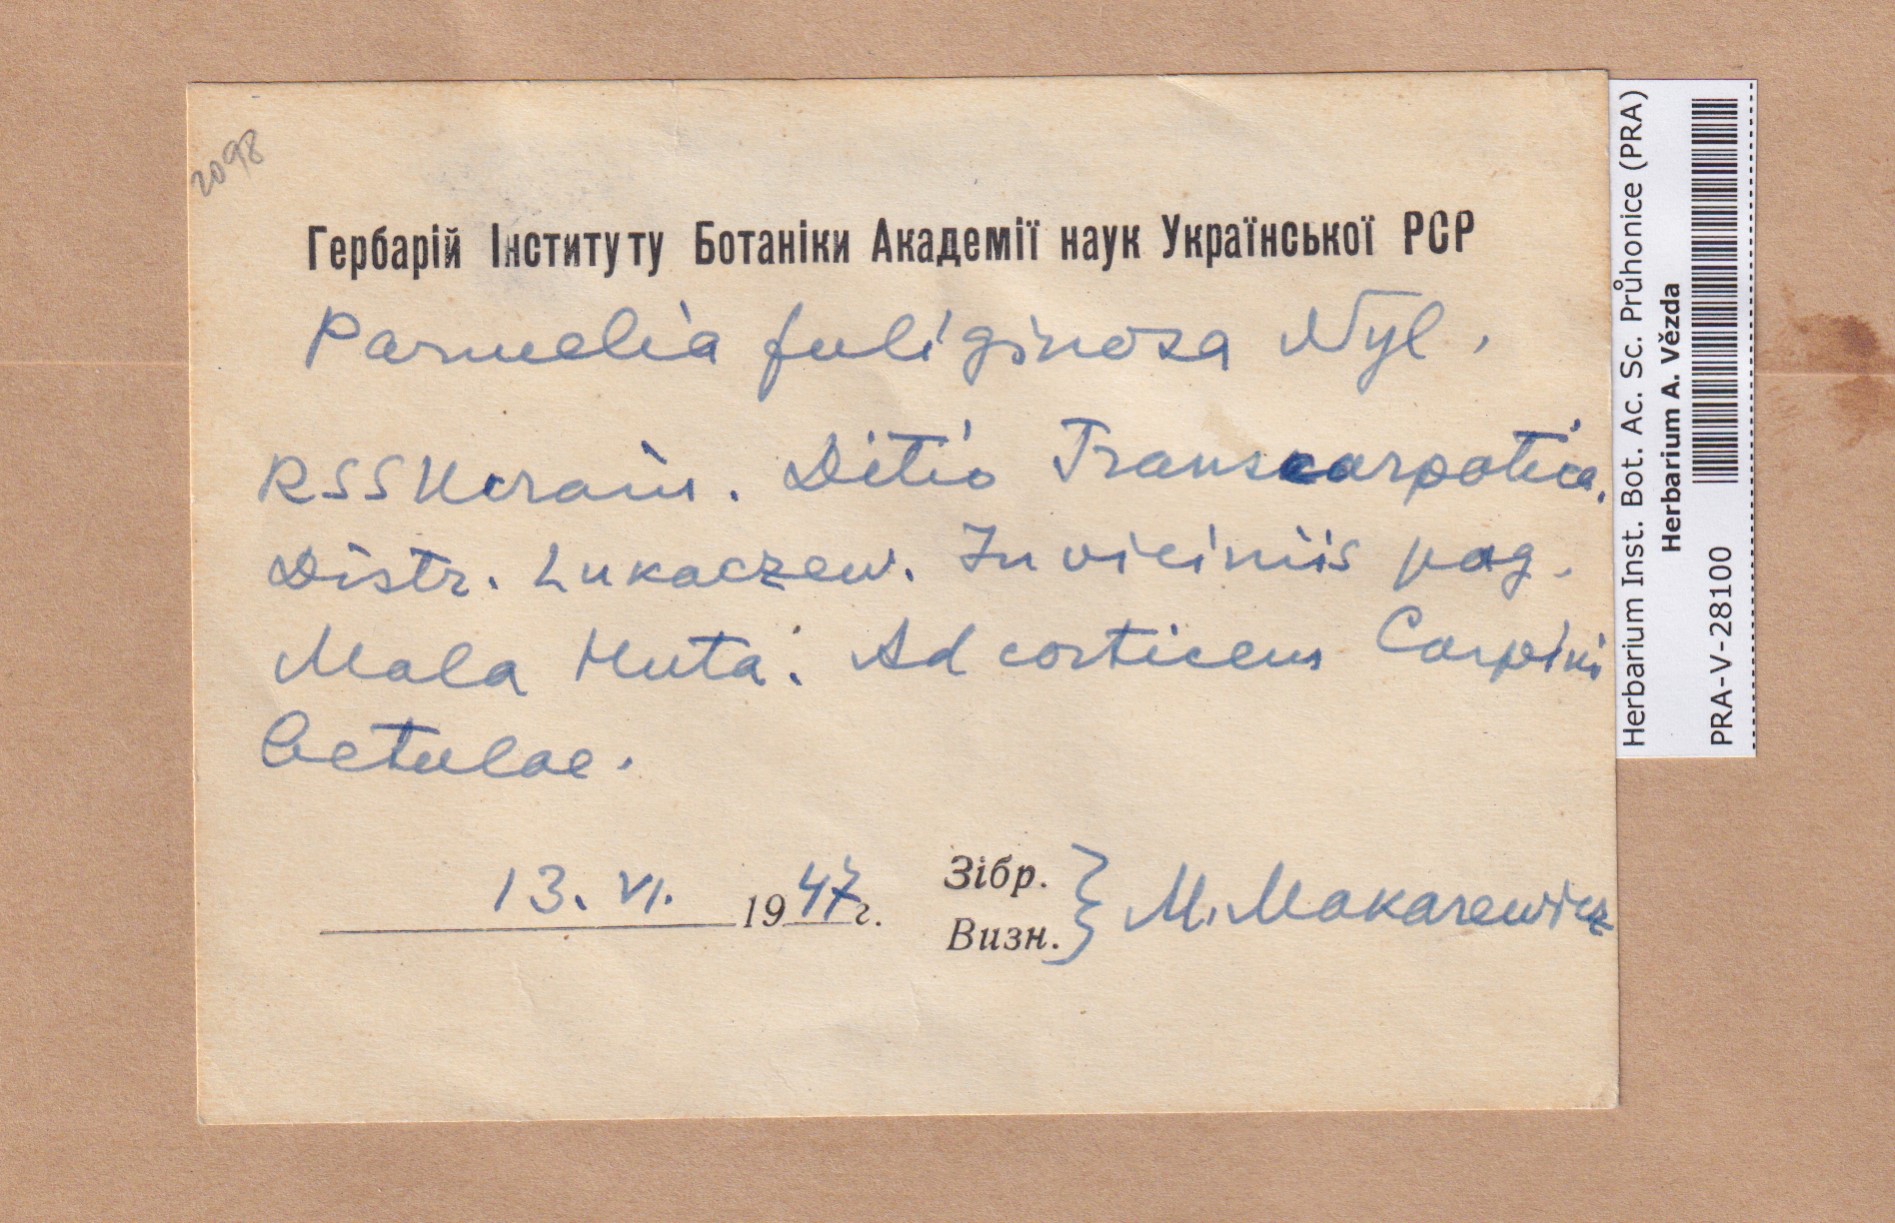 2098
Гербарій Інституту Ботаніки Академії наук Української РСР
Parmelia fuliginosa Nyl.
RSS Ucrain. Ditio Transcarpatica.
Distr. Lukaczew. In viciniis pag.
Mala Huta. Ad corticem Carpini
betulae.
13. VI. 1947 г.
Зібр.
Визн. } M. Makarewicz
Herbarium Inst. Bot. Ac. Sc. Průhonice (PRA)
Herbarium A. Vězda
PRA-V-28100